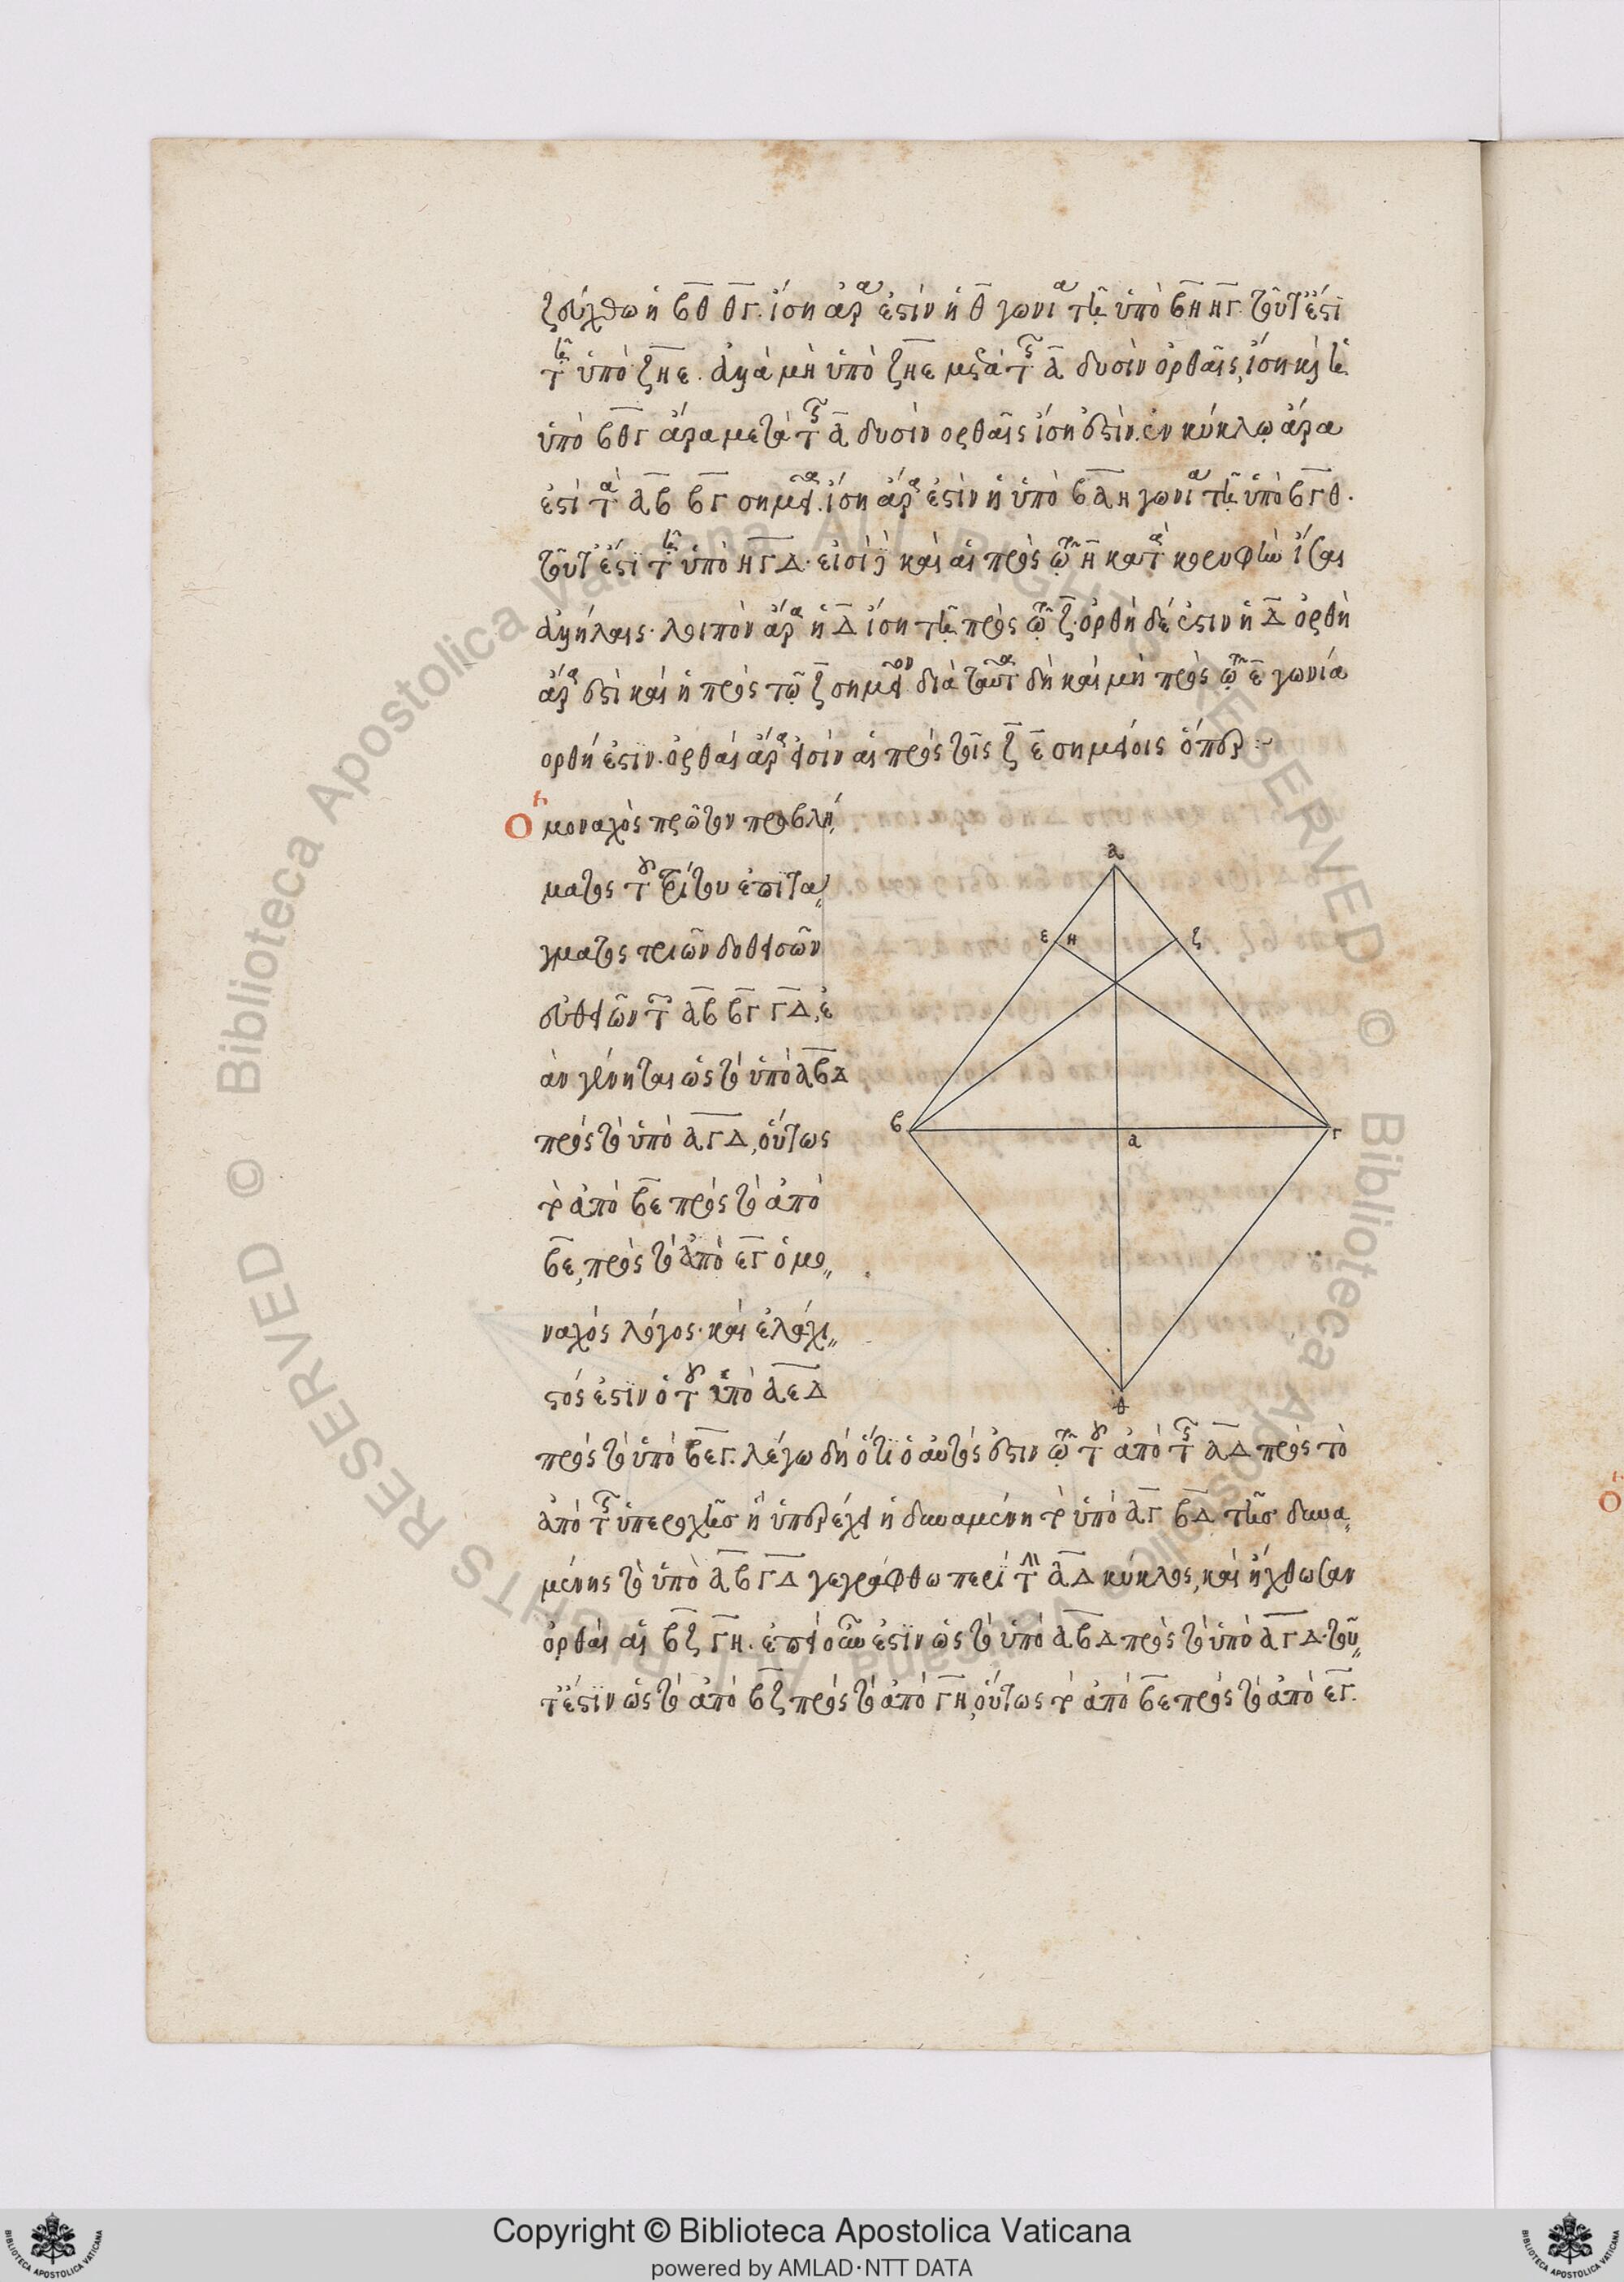 ζεύχθω ἡ ΒΘ ΘΓ. ἴση ἄρα ἐστὶν ἡ Θ γωνία τῇ ὑπὸ ΒΗ ΗΓ. τοῦτ' ἔστι
τῇ ὑπὸ ΖΗΕ. ἀλλὰ μὴ ὑπὸ ΖΗΕ μετὰ τῆς Α δυσὶν ὀρθαῖς, ἴση καὶ ἡ
ὑπὸ ΒΘΓ ἄρα μετὰ τῆς Α δυσὶν ορθαῖς ἴση ἐστὶν. ἐν κύκλῳ ἄρα
ἐστὶ τὰ ΑΒ ΒΓ σημεῖα. ἴση ἄρα ἐστὶν ἡ ὑπὸ ΒΑΗ γωνία τῇ ὑπὸ ΒΓΘ.
τοῦτ' ἔστι τῇ ὑπὸ ΗΓΔ. εἰσὶ δὲ καὶ αἱ πρὸς τῷ Η κατὰ κορυφὴν ἴσαι
ἀλλήλαις. λοιπὸν ἄρα ἡ Δ ἴση τῇ πρὸς τῷ Ζ. ὀρθὴ δέ ἐστιν ἡ Δ ὀρθὴ
ἄρα ἐστὶ καὶ ἡ πρὸς τῷ Ζ σημεῖον διὰ ταῦτα δὴ καὶ μὴ πρὸς τῷ Ε γωνία
ορθή ἐστιν. ὀρθαὶ ἄρα εἰσὶν αἱ πρὸς τοῖς Ζ Ε σημείοις ὅπερ :~
Ὁ μοναχὸς πρῶτον προβλή,
ματος τοῦ τρίτου ἐπιτά,,
γματος τριῶν δοθεισῶν
εὐθειῶν τῶν ΑΒ ΒΓ ΓΔ, ἐ
ὰν γένηται ὡς τὸ ὑπὸ ΑΒΔ
πρὸς τὸ ὑπὸ ΑΓΔ, οὕτως
τὸ ἀπὸ ΒΕ πρὸς τὸ ἀπὸ
ΒΕ, πρὸς τὸ ἀπὸ ΕΓ ὁ μο,,
ναχὸς λόγος. καὶ ἐλάχι,,
στός ἐστιν ὁ τοῦ ὑπὸ ΑΕΔ
πρὸς τὸ ὑπὸ ΒΕΓ. λέγω δὴ ὅτι ὁ αὐτός ἐστιν τῷ τοῦ ἀπὸ τῆς ΑΔ πρὸς τὸ
ἀπὸ τῆς ὑπεροχῆς ᾗ ὑπερέχει ἡ δυναμένη τὸ ὑπὸ ΑΓ ΒΔ τῆς δυνα,,
μένης τὸ ὑπὸ ΑΒ ΓΔ γεγράφθω περὶ τὴν ΑΔ κύκλος, καὶ ἤχθωσαν
ὀρθαὶ αἱ ΒΖ ΓΗ. ἐπεὶ οὖν ἐστὶν ὡς τὸ ὑπὸ ΑΒΔ πρὸς τὸ ὑπὸ ΑΓΔ. τοῦ,,
τ' ἔστιν ὡς τὸ ἀπὸ ΒΖ πρὸς τὸ ἀπὸ ΓΗ, οὕτως τὸ ἀπὸ ΒΕ πρὸς τὸ ἀπὸ ΕΓ.
Α
Ε Η Ζ
Β Δ Γ
Θ
© Biblioteca Apostolica Vaticana. ALL RIGHTS RESERVED
© Biblioteca Apostolica Vaticana. ALL RIGHTS RESERVED
Copyright © Biblioteca Apostolica Vaticana
powered by AMLAD·NTT DATA
BIBLIOTECA APOSTOLICA VATICANA
BIBLIOTECA APOSTOLICA VATICANA